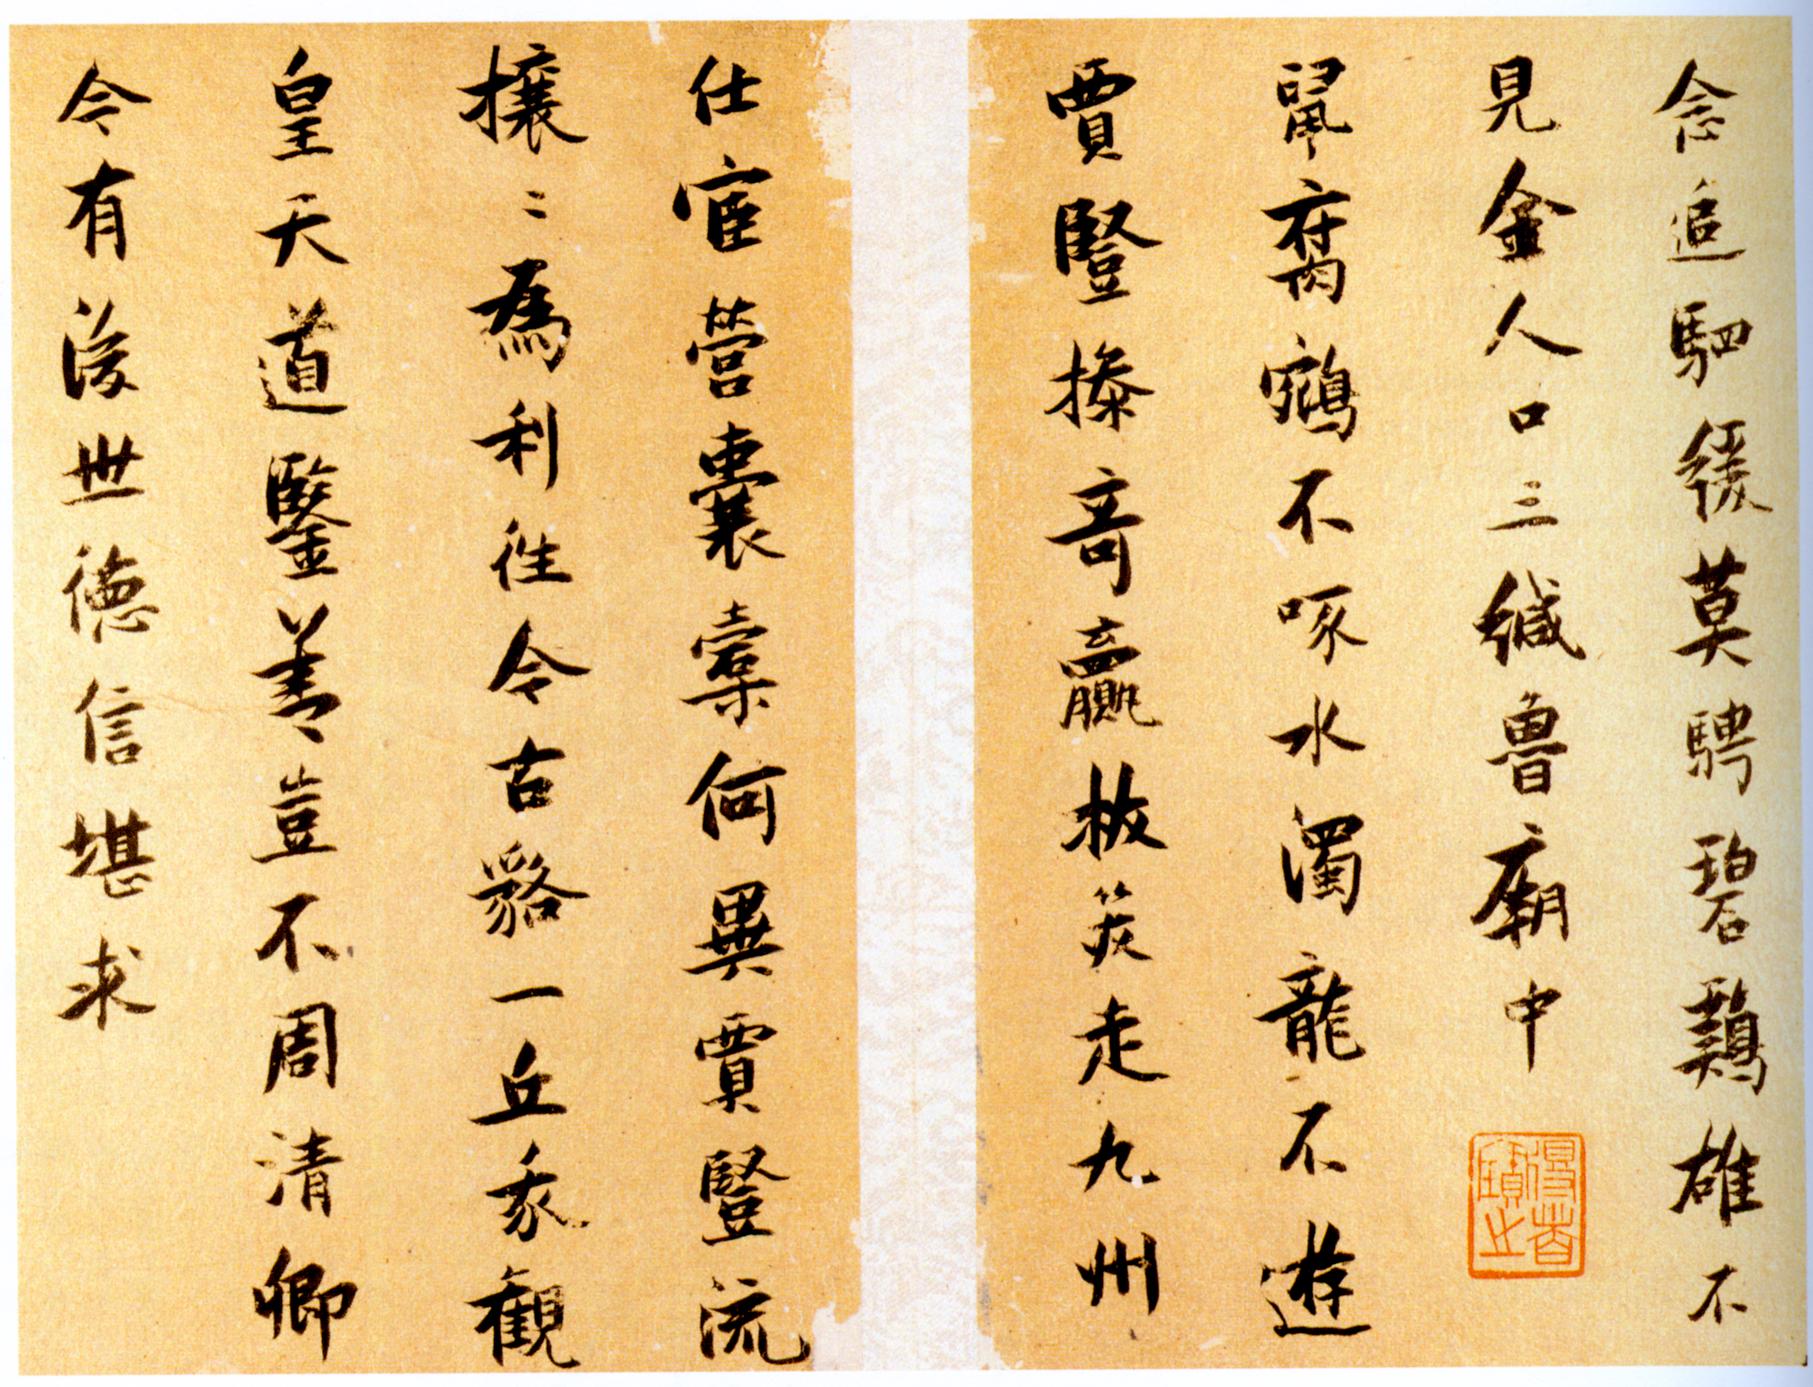 念追駟緩莫騁碧鷄雄不
見金人口三緘魯廟中
得者寶之
鼠腐鵷不啄水濁龍不遊
賈豎操竒贏筴走九州
仕宦營囊槖何異賈豎流
攘〻為利往今古貉一丘我觀
皇天道鑒善豈不周清卿
今有後世德信堪求